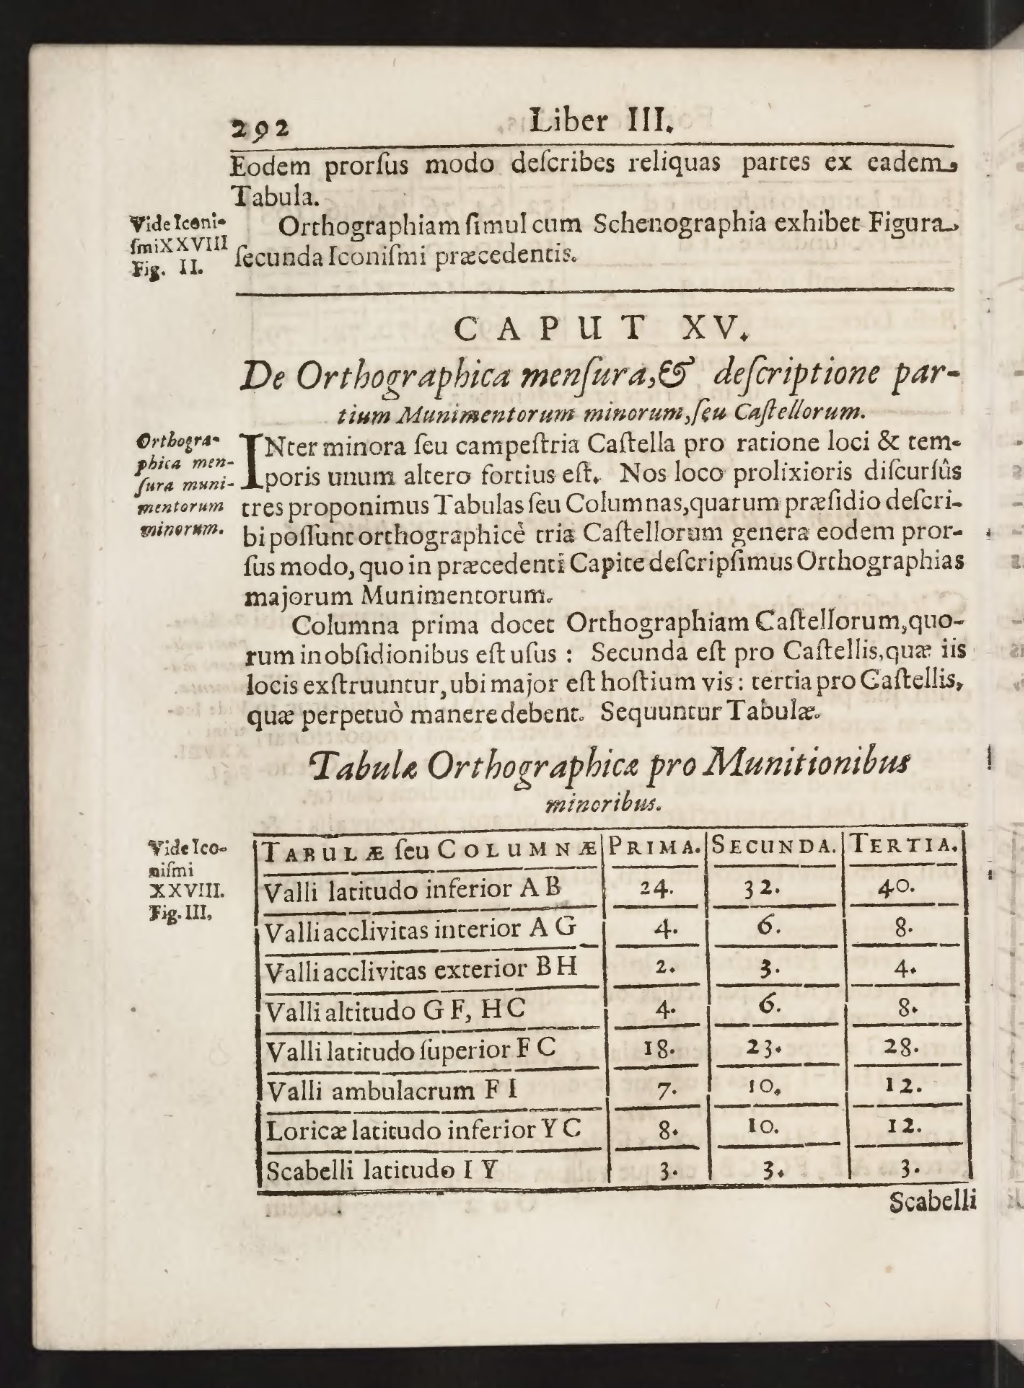 292 Liber III.
Eodem prorſus modo deſcribes reliquas partes ex eadem
Tabula.
Vide Iconi-
ſmi XXVIII
Fig. II.
Orthographiam ſimul cum Schenographia exhibet Figura
ſecunda Iconiſmi præcedentis.
CAPUT XV.
De Orthographica menſura, & deſcriptione par-
tium Munimentorum minorum, ſeu Caſtellorum.
Orthogra-
phica men-
ſura muni-
mentorum
minorum.
INter minora ſeu campeſtria Caſtella pro ratione loci & tem-
poris unum altero fortius eſt. Nos loco prolixioris diſcurſûs
tres proponimus Tabulas ſeu Columnas, quarum præſidio deſcri-
bi poſſunt orthographicè tria Caſtellorum genera eodem pror-
ſus modo, quo in præcedenti Capite deſcripſimus Orthographias
majorum Munimentorum.
Columna prima docet Orthographiam Caſtellorum, quo-
rum in obſidionibus eſt uſus : Secunda eſt pro Caſtellis, quæ iis
locis exſtruuntur, ubi major eſt hoſtium vis : tertia pro Caſtellis,
quæ perpetuò manere debent. Sequuntur Tabulæ.
Tabulæ Orthographicæ pro Munitionibus
minoribus.
Vide Ico-
niſmi
XXVIII.
Fig. III,
TABULÆ ſeu COLUMNÆ PRIMA. SECUNDA. TERTIA.
Valli latitudo inferior A B 24. 32. 40.
Valli acclivitas interior A G 4. 6. 8.
Valli acclivitas exterior B H 2. 3. 4.
Valli altitudo G F, H C 4. 6. 8.
Valli latitudo ſuperior F C 18. 23. 28.
Valli ambulacrum F I 7. 10. 12.
Loricæ latitudo inferior Y C 8. 10. 12.
Scabelli latitudo I Y 3. 3. 3.
Scabelli